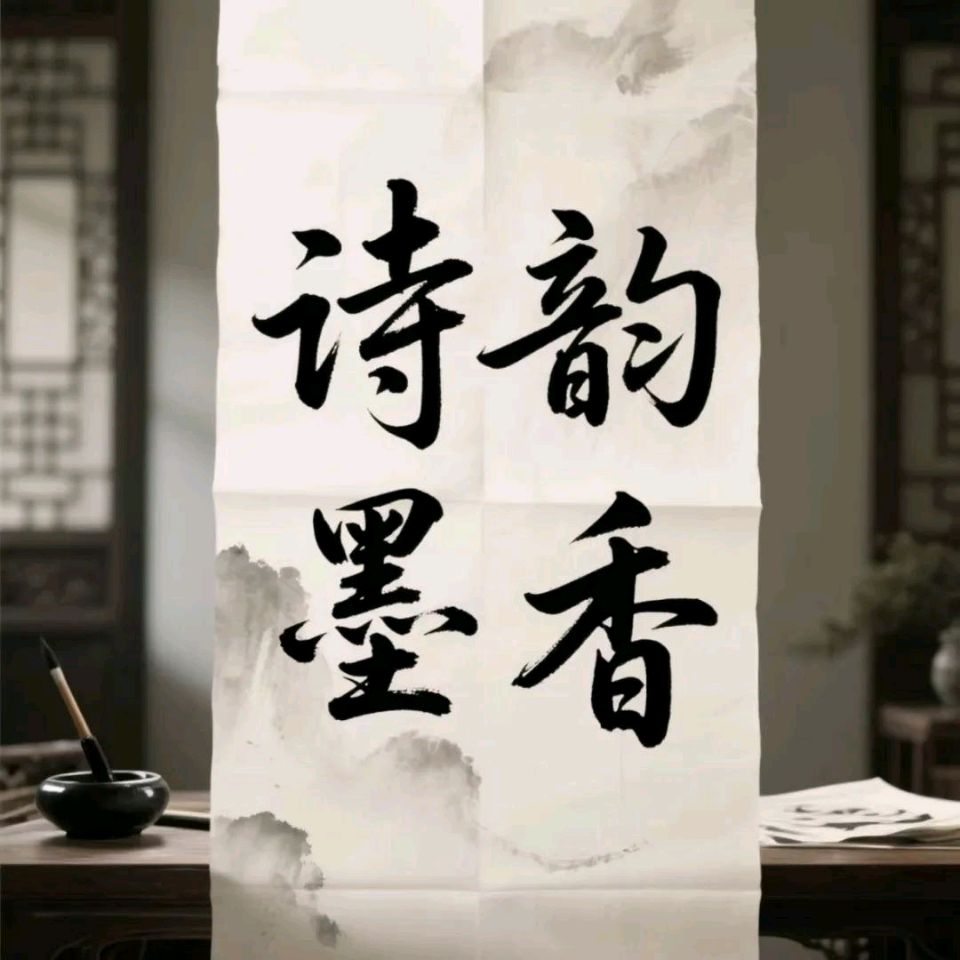 诗韵
墨香